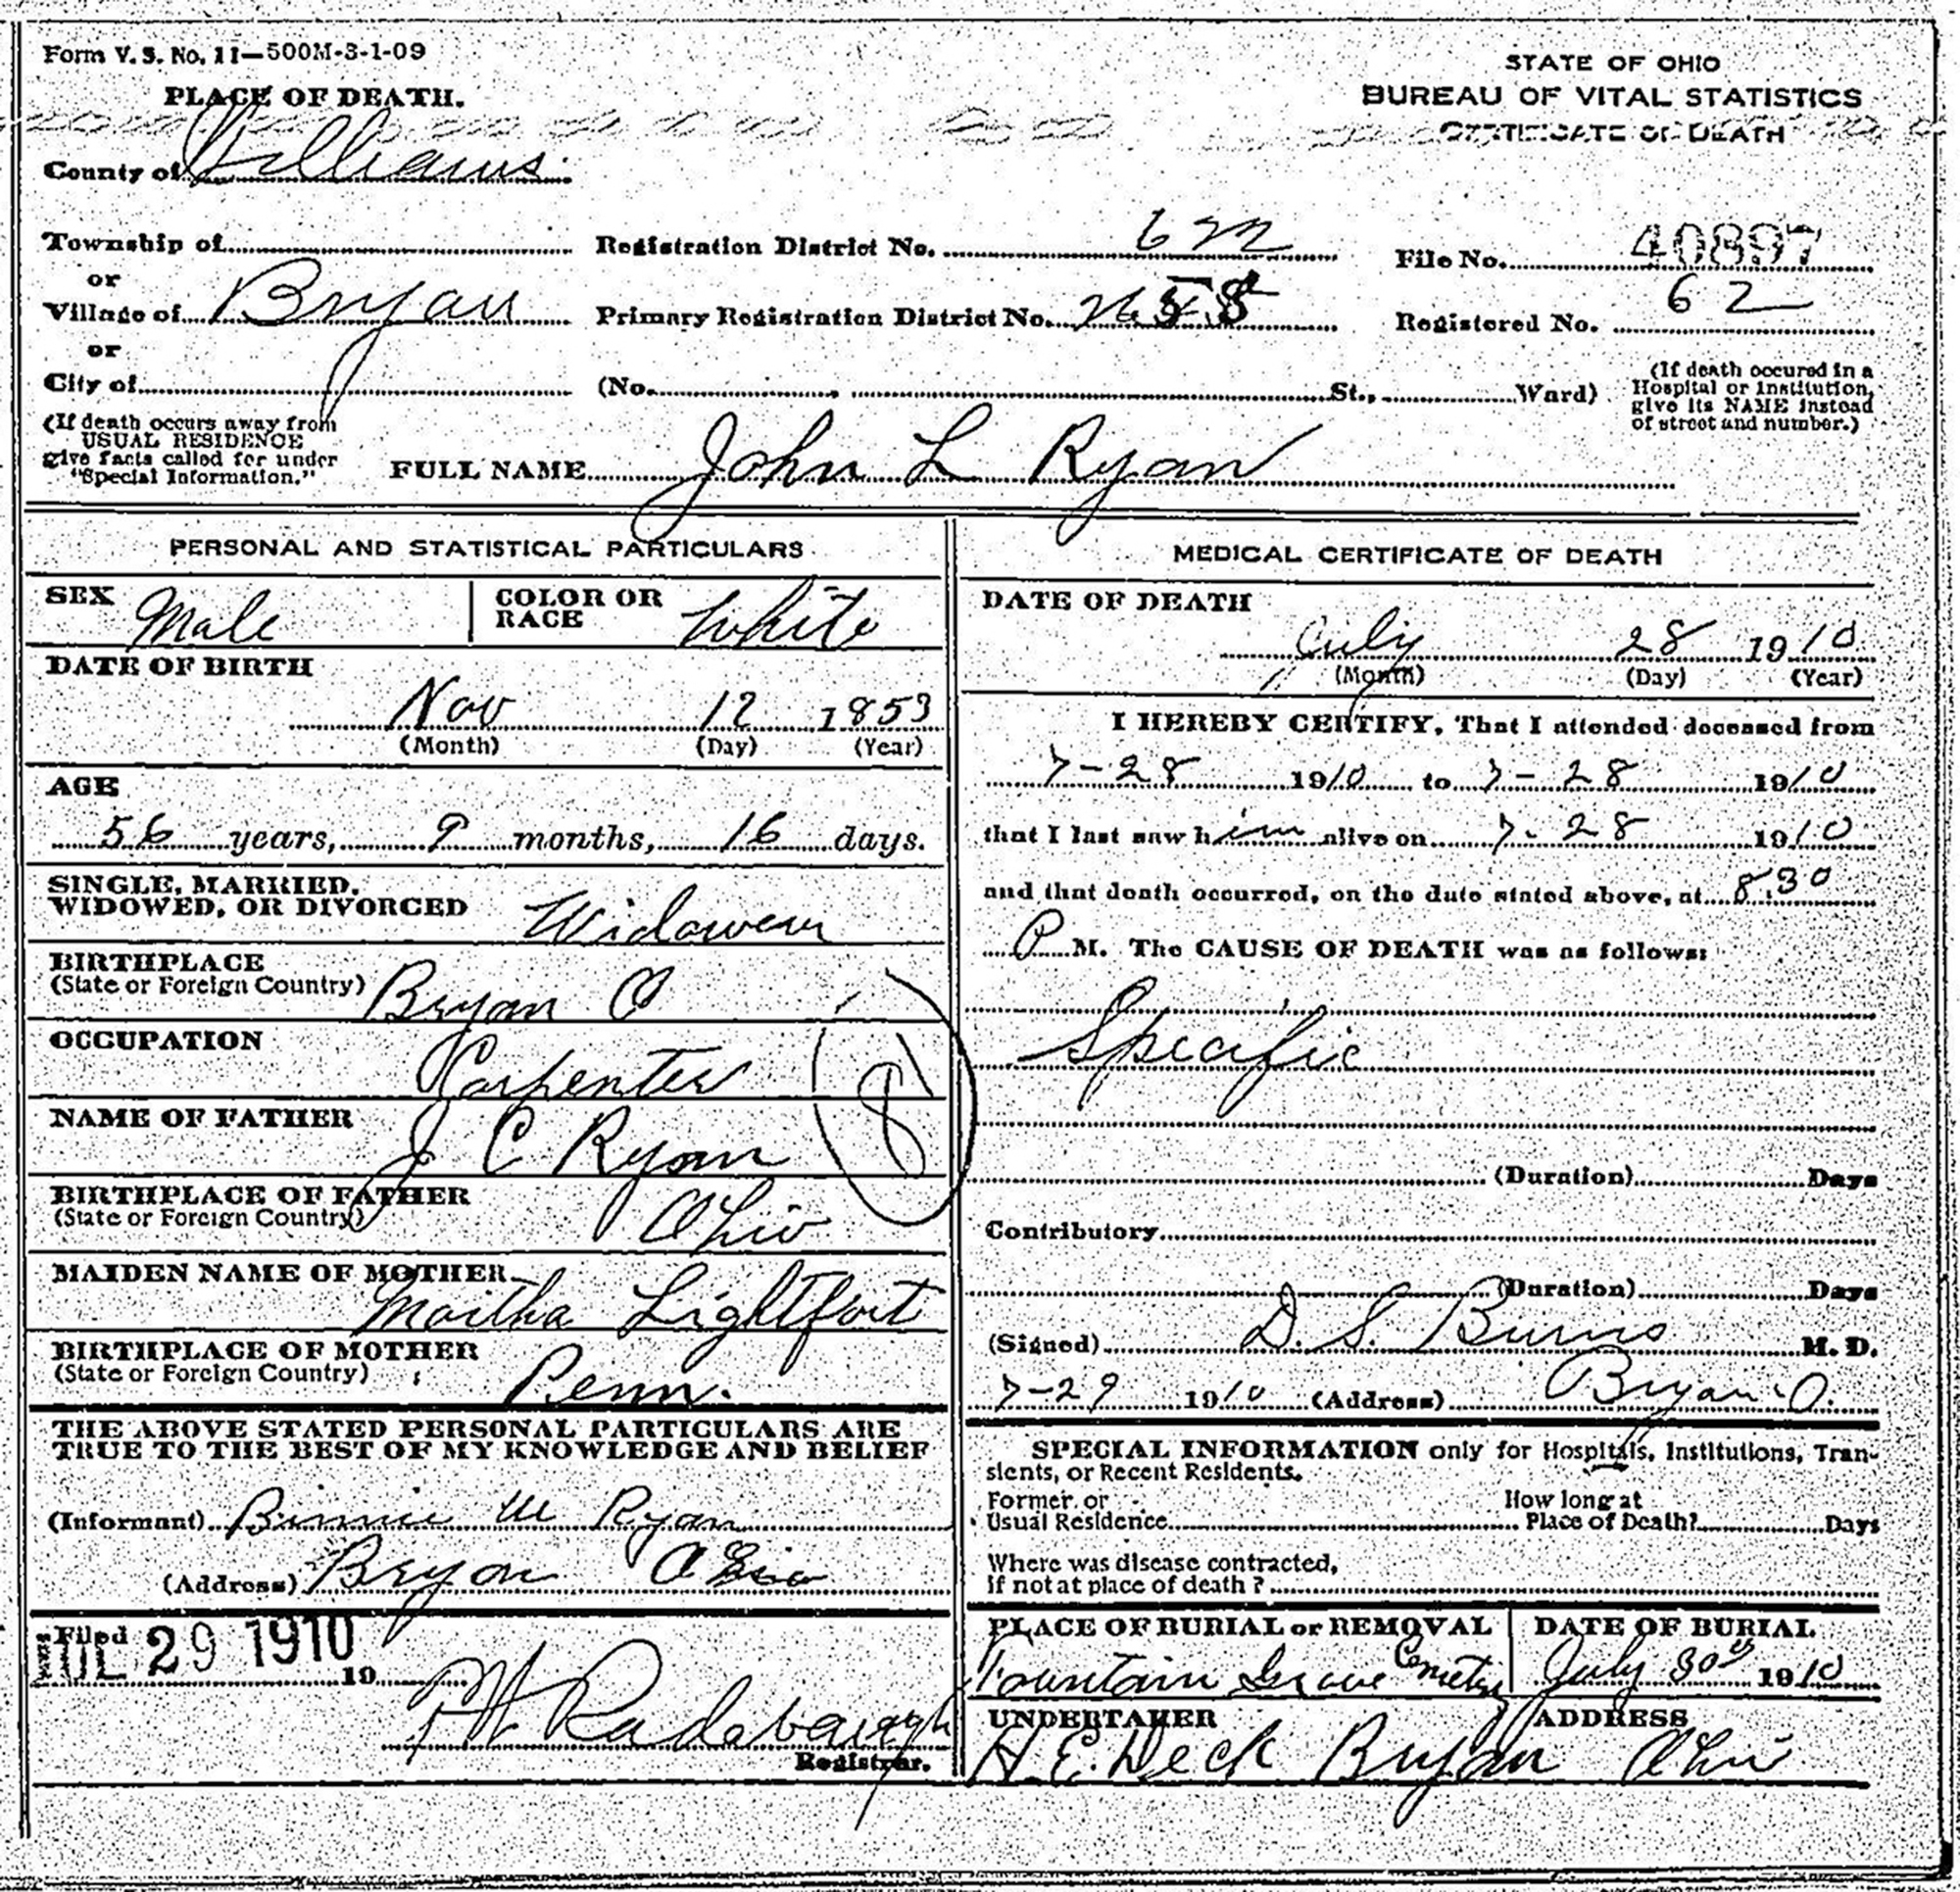 Form V. S. No. 11—500M-3-1-09
STATE OF OHIO
PLACE OF DEATH.
BUREAU OF VITAL STATISTICS
CERTIFICATE OF DEATH
County of Williams
Township of
Registration District No. 622
File No. 40897
or
Village of Bryan
Primary Registration District No.
Registered No. 62
or
City of
(No. , St., Ward)
(If death occured in a
Hospital or Institution,
give its NAME instead
of street and number.)
(If death occurs away from
USUAL RESIDENCE
give facts called for under
"Special Information."
FULL NAME John L Ryan
PERSONAL AND STATISTICAL PARTICULARS
SEX Male
COLOR OR
RACE White
DATE OF BIRTH
Nov 12 1853
(Month) (Day) (Year)
AGE
56 years, 9 months, 16 days.
SINGLE, MARRIED,
WIDOWED, OR DIVORCED Widower
BIRTHPLACE
(State or Foreign Country) Bryan O
OCCUPATION
Carpenter
NAME OF FATHER
J C Ryan
BIRTHPLACE OF FATHER
(State or Foreign Country) Ohio
MAIDEN NAME OF MOTHER
Martha Lightfoot
BIRTHPLACE OF MOTHER
(State or Foreign Country) Penn.
THE ABOVE STATED PERSONAL PARTICULARS ARE
TRUE TO THE BEST OF MY KNOWLEDGE AND BELIEF
(Informant) M Ryan
(Address) Bryan Ohio
Filed JUL 29 1910
19
Radabaugh
Registrar.
MEDICAL CERTIFICATE OF DEATH
DATE OF DEATH
July 28 1910
(Month) (Day) (Year)
I HEREBY CERTIFY, That I attended deceased from
7-28 1910 to 7-28 1910
that I last saw him alive on 7-28 1910
and that death occurred, on the date stated above, at 8.30
P M. The CAUSE OF DEATH was as follows:
Specific
(Duration) Days
Contributory
(Duration) Days
(Signed) D. S. Burns M. D.
7-29 1910 (Address) Bryan O.
SPECIAL INFORMATION only for Hospitals, Institutions, Tran-
sients, or Recent Residents.
Former or
Usual Residence
How long at
Place of Death? Days
Where was disease contracted,
if not at place of death ?
PLACE OF BURIAL or REMOVAL
Fountain Grove Cemetery
DATE OF BURIAL
July 30th 1910
UNDERTAKER
ADDRESS
H. E. Deck Bryan Ohio